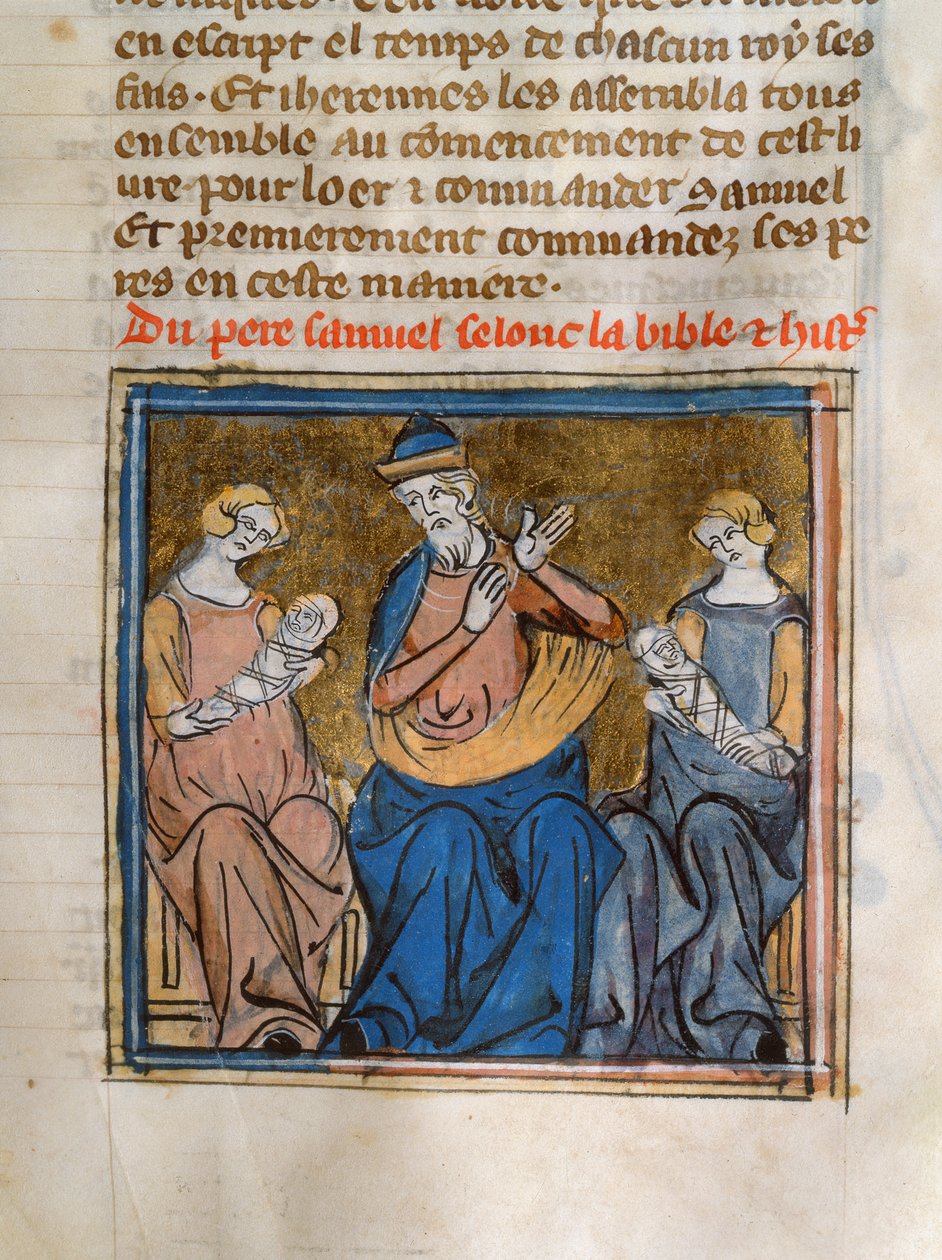 en escript el temps de chascun roy ses
fais. Et iherennes les assembla tous
ensemble au cōmencement de cest li
ure. pour loer ⁊ commander Samuel
Et premierement commandez ses pe
res en ceste maniere.
Du pere samuel selonc la bible ⁊ hist